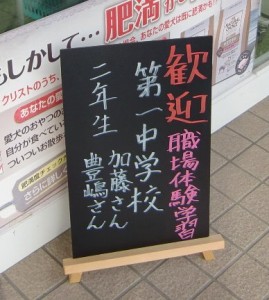 歓迎
職場体験学習
第一中学校
二年生
加藤さん
豊嶋さん
肥満
もしかして…
あなたの愛
愛犬のおやつの
自分が食べてい
ついついお散歩